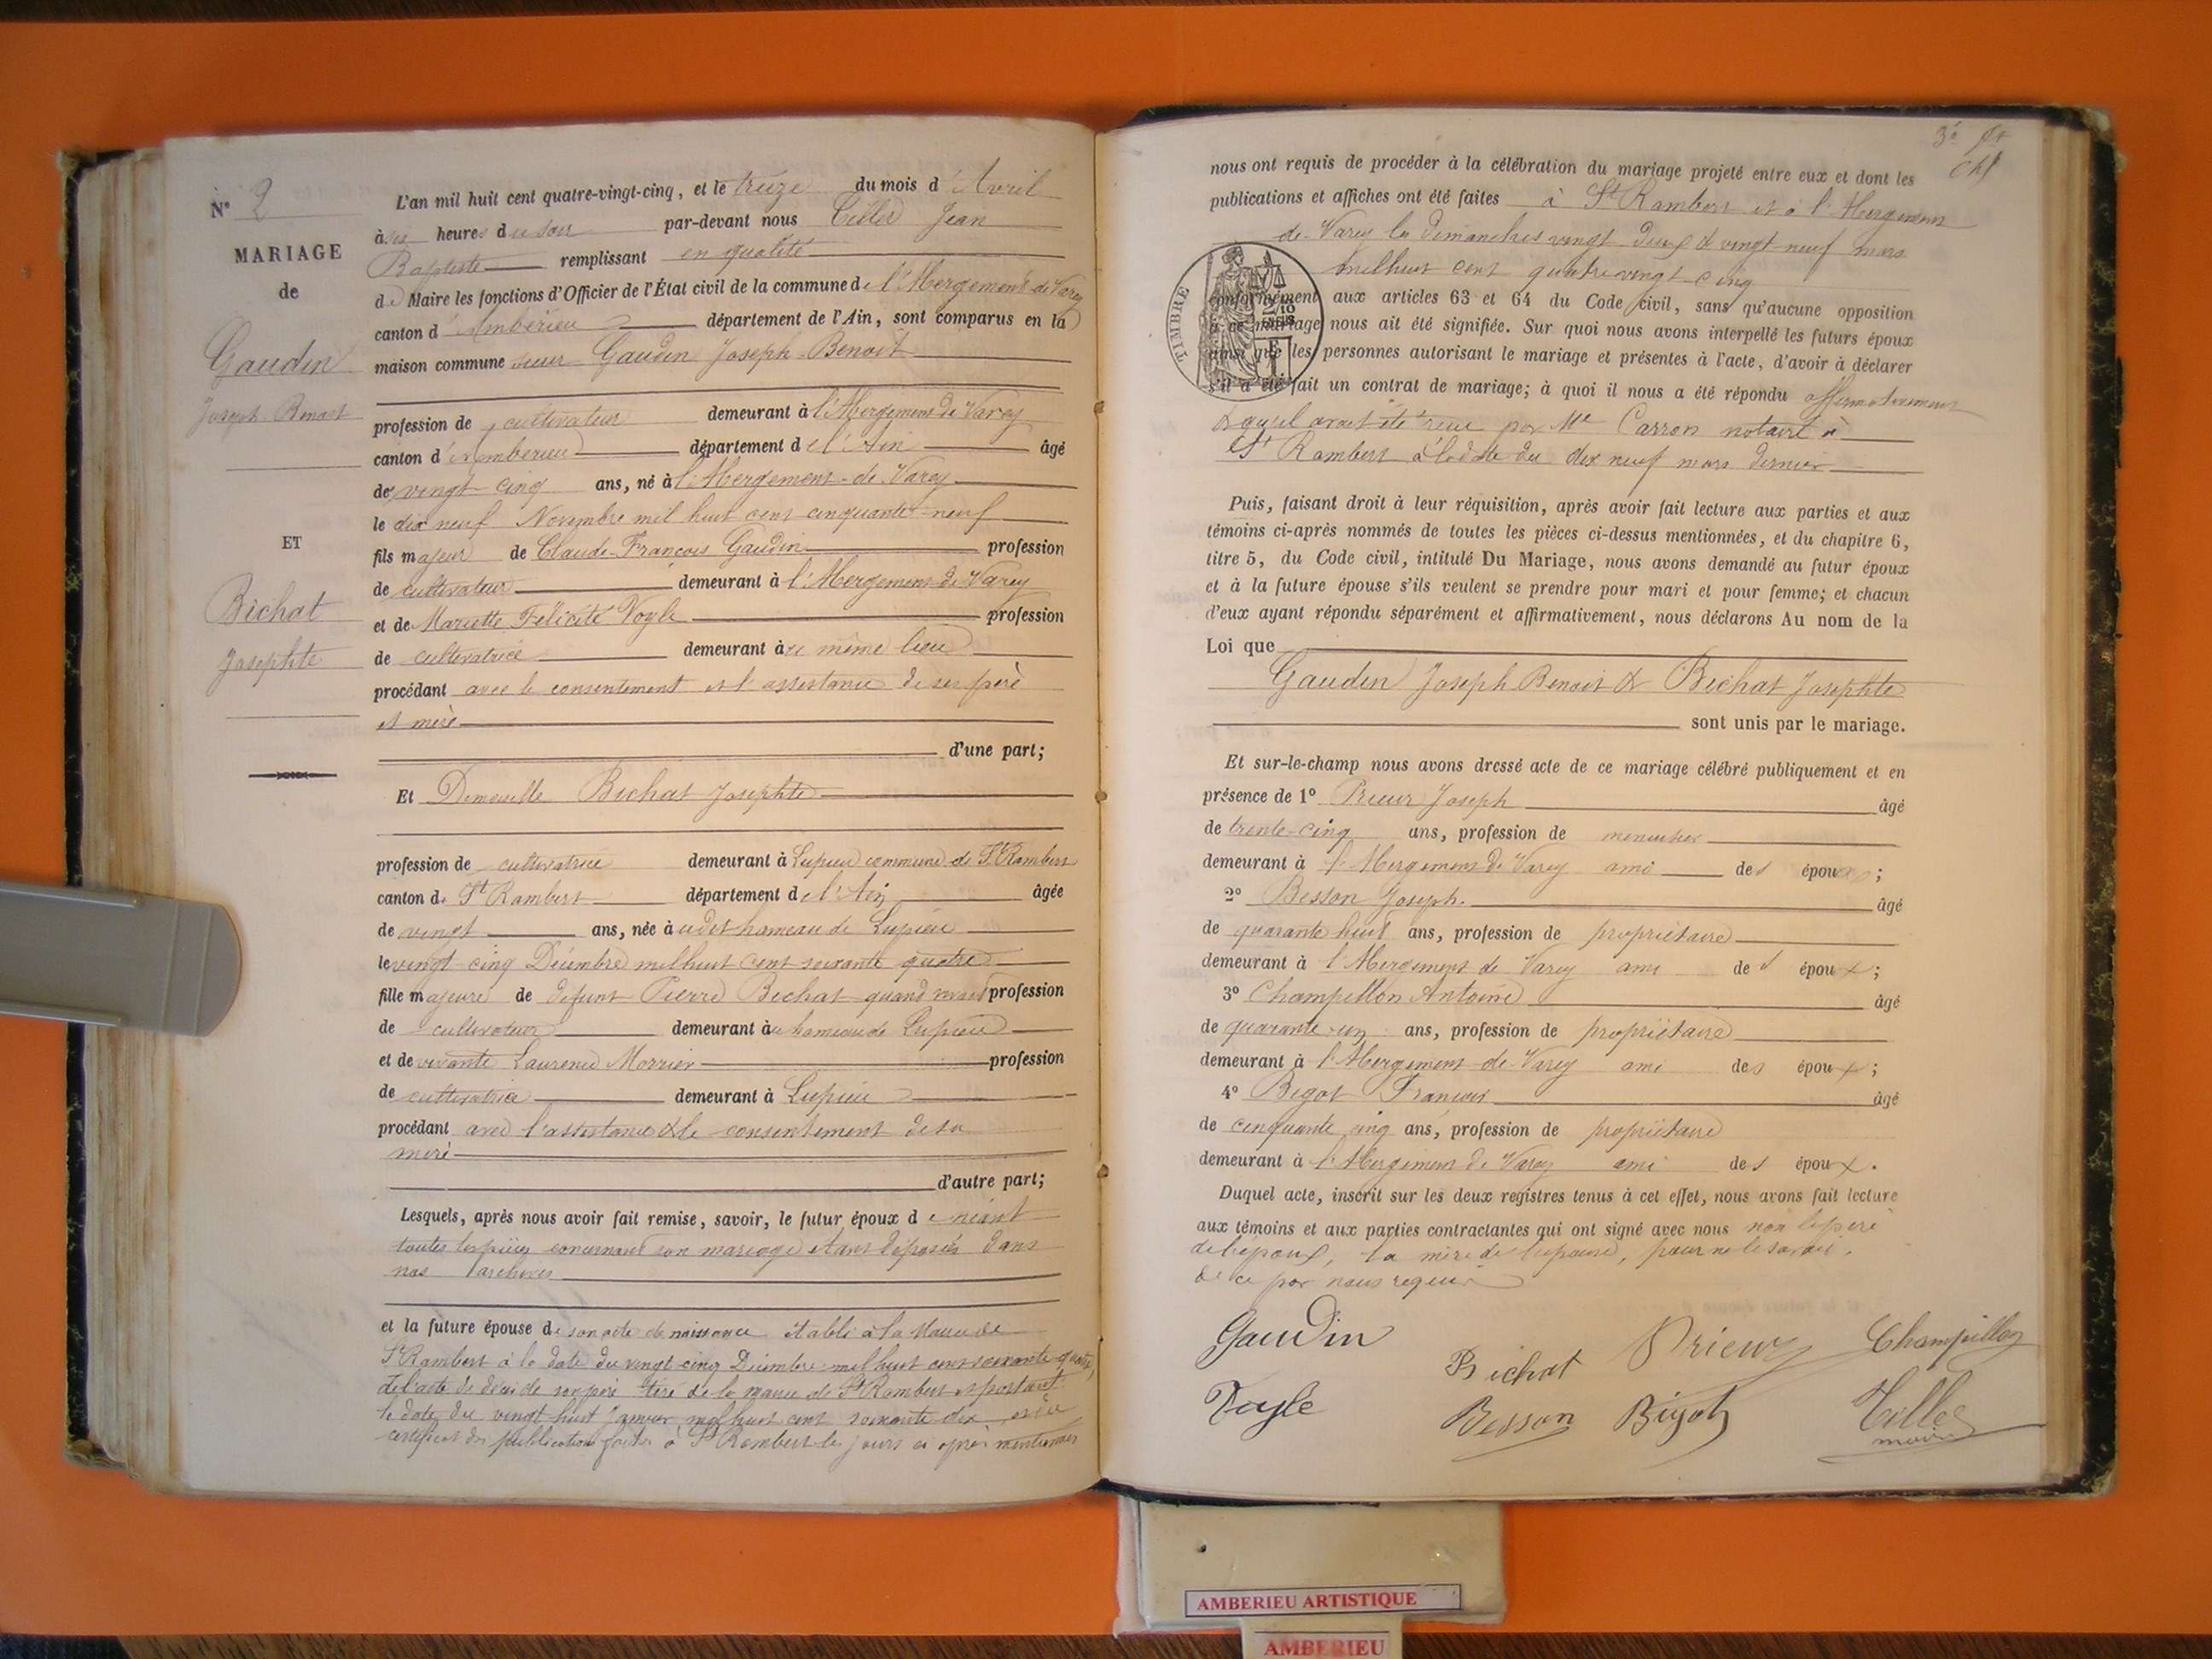 N° 2
MARIAGE
de
Gaudin
Joseph-Benoit
ET
Bichat
Josephte
L'an mil huit cent quatre-vingt-cinq, et le treize du mois d'Avril
à six heures du soir par-devant nous Jean
Baptiste remplissant en qualité
de Maire les fonctions d'Officier de l'État civil de la commune de l'Abergement-de-Varey
canton d'Ambérieu département de l'Ain, sont comparus en la
maison commune sieur Gaudin Joseph-Benoit
profession de cultivateur demeurant à l'Abergement de Varey
canton d'Ambérieu département de l'Ain âgé
de vingt-cinq ans, né à l'Abergement-de-Varey
le dix neuf Novembre mil huit cent cinquante-neuf
fils majeur de Claude-François Gaudin profession
de cultivateur demeurant à l'Abergement-de-Varey
et de Mariette Félicité Vogle profession
de cultivatrice demeurant au même lieu
procédant avec le consentement et l'assistance de ses père
et mère
d'une part;
Et Demoiselle Bichat Josephte
profession de cultivatrice demeurant à Lupieu commune de St Rambert
canton de St Rambert département de l'Ain âgée
de vingt ans, née à udit hameau de Lupieu
le vingt-cinq Décembre mil huit cent soixante quatre
fille majeure de défunt Pierre Bichat quand vivait profession
de cultivateur demeurant au hameau de Lupieu
et de vivante Laurence Morrier profession
de cultivatrice demeurant à Lupieu
procédant avec l'assistance & le consentement de sa
mère
d'autre part;
Lesquels, après nous avoir fait remise, savoir, le futur époux de néant
toutes les pièces concernant son mariage étant déposées dans
nos archives
et la future épouse de son acte de naissance établi à la Mairie de
St Rambert à la date du vingt cinq Décembre mil huit cent soixante-quatre,
de l'acte de décès de son père tiré de la mairie de St Rambert et portant
la date du vingt-huit Janvier mil huit cent soixante dix et du
certificat des publications faites à St Rambert les jours ci après mentionnés
3e
nous ont requis de procéder à la célébration du mariage projeté entre eux et dont les
publications et affiches ont été faites à St Rambert et à l'Abergement
de-Varey les dimanches vingt-deux & vingt-neuf mars
mil huit cent quatre vingt-cinq
TIMBRE
conformément aux articles 63 et 64 du Code civil, sans qu'aucune opposition
à ce mariage nous ait été signifiée. Sur quoi nous avons interpellé les futurs époux
ainsi que les personnes autorisant le mariage et présentes à l'acte, d'avoir à déclarer
s'il a été fait un contrat de mariage; à quoi il nous a été répondu affirmativement
& qu'il avait été reçu par Me Carron notaire à
St Rambert à la date du dix neuf mars dernier
Puis, faisant droit à leur réquisition, après avoir fait lecture aux parties et aux
témoins ci-après nommés de toutes les pièces ci-dessus mentionnées, et du chapitre 6,
titre 5, du Code civil, intitulé Du Mariage, nous avons demandé au futur époux
et à la future épouse s'ils veulent se prendre pour mari et pour femme; et chacun
d'eux ayant répondu séparément et affirmativement, nous déclarons Au nom de la
Loi que
Gaudin Joseph Benoit & Bichat Josephte
sont unis par le mariage.
Et sur-le-champ nous avons dressé acte de ce mariage célébré publiquement et en
présence de 1° Prieur Joseph âgé
de trente-cinq ans, profession de menuisier
demeurant à l'Abergement de Varey ami des époux;
2° Besson Joseph. âgé
de quarante huit ans, profession de propriétaire
demeurant à l'Abergement de Varey ami des époux;
3° Champillon Antoine âgé
de quarante-un ans, profession de propriétaire
demeurant à l'Abergement-de-Varey ami des époux;
4° Bigot François âgé
de cinquante cinq ans, profession de propriétaire
demeurant à l'Abergement de Varey ami des époux.
Duquel acte, inscrit sur les deux registres tenus à cet effet, nous avons fait lecture
aux témoins et aux parties contractantes qui ont signé avec nous non le père
de l'époux, la mère de l'épouse, pour ne le savoir,
de ce par nous requis
Gaudin
Bichat
Prieur
Champillon
Vogle
Besson
Bigot
maire
AMBERIEU ARTISTIQUE
AMBERIEU